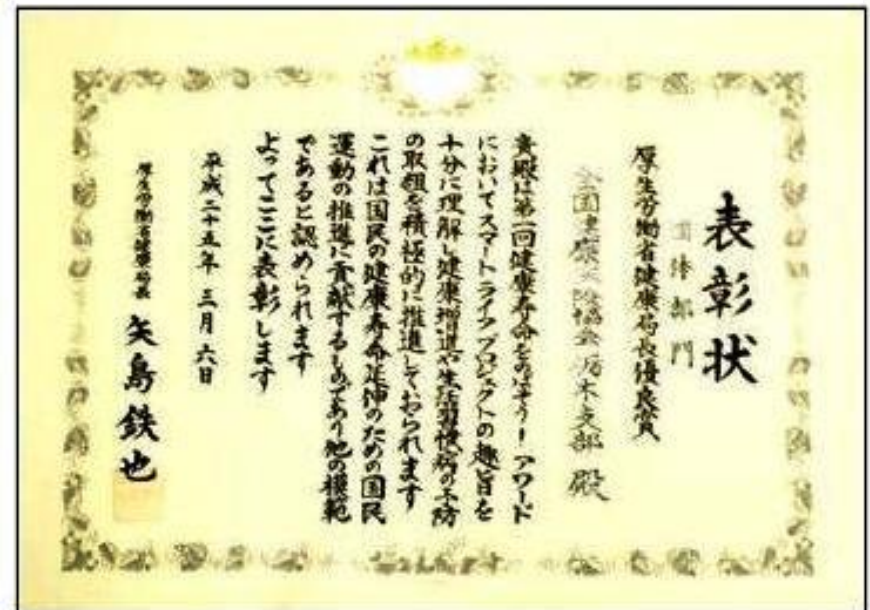 表彰状
団体部門
厚生労働省健康局長優良賞
全国健康保険協会栃木支部 殿
貴殿は第一回健康寿命をのばそう！アワード
においてスマートライフプロジェクトの趣旨を
十分に理解し健康増進や生活習慣病の予防
の取組を積極的に推進しておられます
これは国民の健康寿命延伸のための国民
運動の推進に貢献するものであり他の模範
であると認められます
よってここに表彰します
平成二十五年 三月 六日
厚生労働省健康局長 矢島鉄也